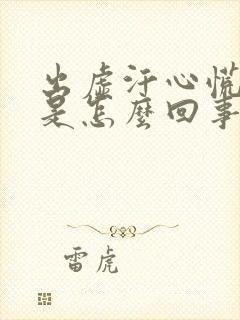 出虚汗心慌
是怎麼回事
雷虎